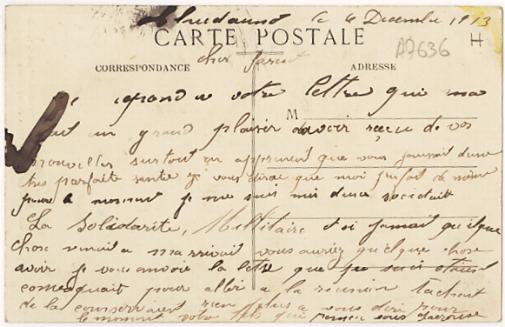 le 4 Decembre 1913
CARTE POSTALE
A7636
CORRESPONDANCE
ADRESSE
cher Parent
Je repond a votre lettre qui ma
M
fait un grand plaisir davoir reçu de vos
nouvelles surtout en apprenent que vous jouissait dune
tres parfaite santé je vous dirai que moi jouit de même
pour le moment je me suis mi dune societait
La Solidarité, Millitaire et si jamait quelque
chose venait a marrivait vous auriez quelque chose
avoir je vous anvoie la letre que
pour aller a la reunion tachait
de la conservait rien plus a vous dire pour
le moment votre fils qui pense